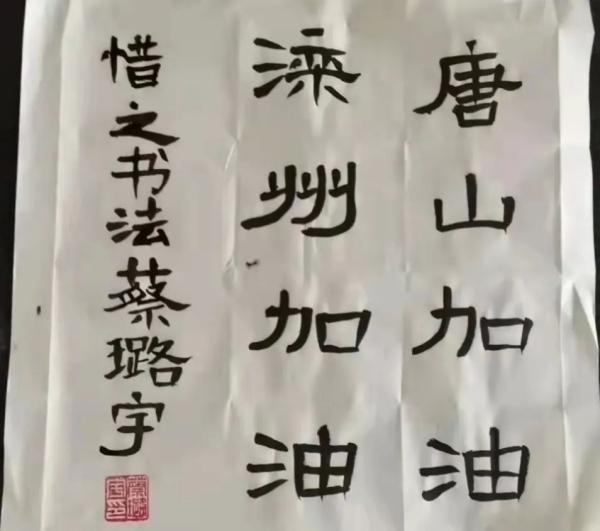 唐山加油
滦州加油
惜之书法蔡璐宇